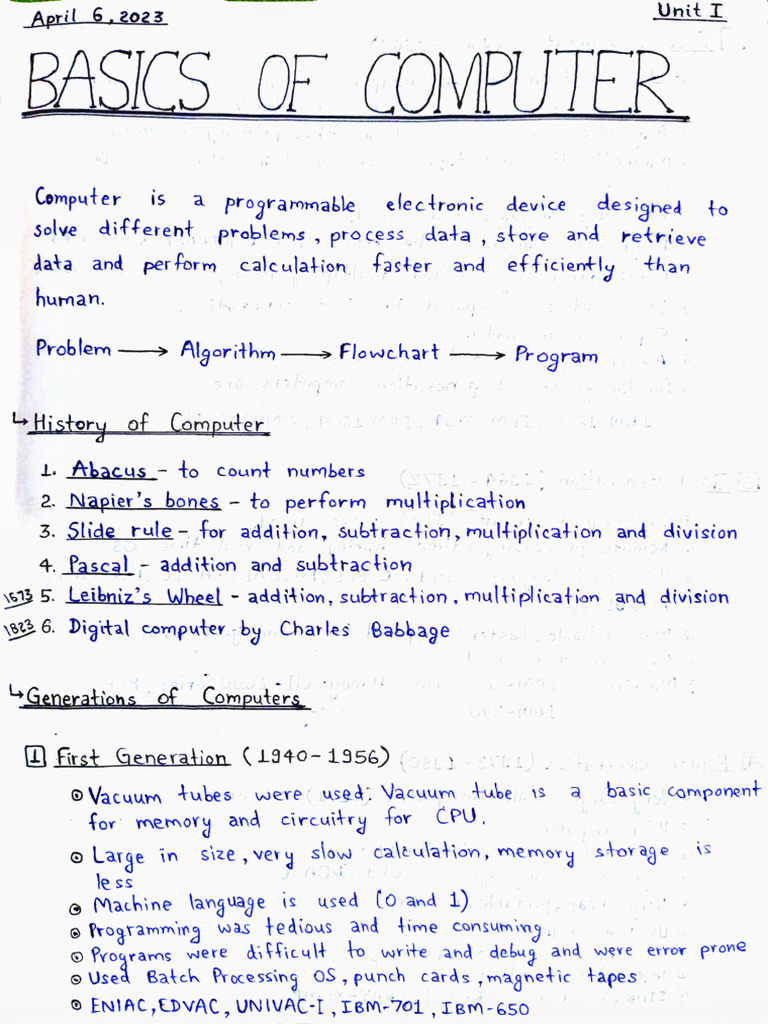 April 6, 2023
Unit I
BASICS OF COMPUTER
Computer is a programmable electronic device designed to
solve different problems, process data, store and retrieve
data and perform calculation faster and efficiently than
human.
Problem → Algorithm → Flowchart → Program
↳ History of Computer
1. Abacus - to count numbers
2. Napier's bones - to perform multiplication
3. Slide rule - for addition, subtraction, multiplication and division
4. Pascal - addition and subtraction
1673 5. Leibniz's Wheel - addition, subtraction, multiplication and division
1823 6. Digital computer by Charles Babbage
↳ Generations of Computers
1 First Generation (1940-1956)
⊙ Vacuum tubes were used. Vacuum tube is a basic component
for memory and circuitry for CPU.
⊙ Large in size, very slow calculation, memory storage is
less
⊙ Machine language is used (0 and 1)
⊙ Programming was tedious and time consuming.
⊙ Programs were difficult to write and debug and were error prone
⊙ Used Batch Processing OS, punch cards, magnetic tapes.
⊙ ENIAC, EDVAC, UNIVAC-I, IBM-701, IBM-650